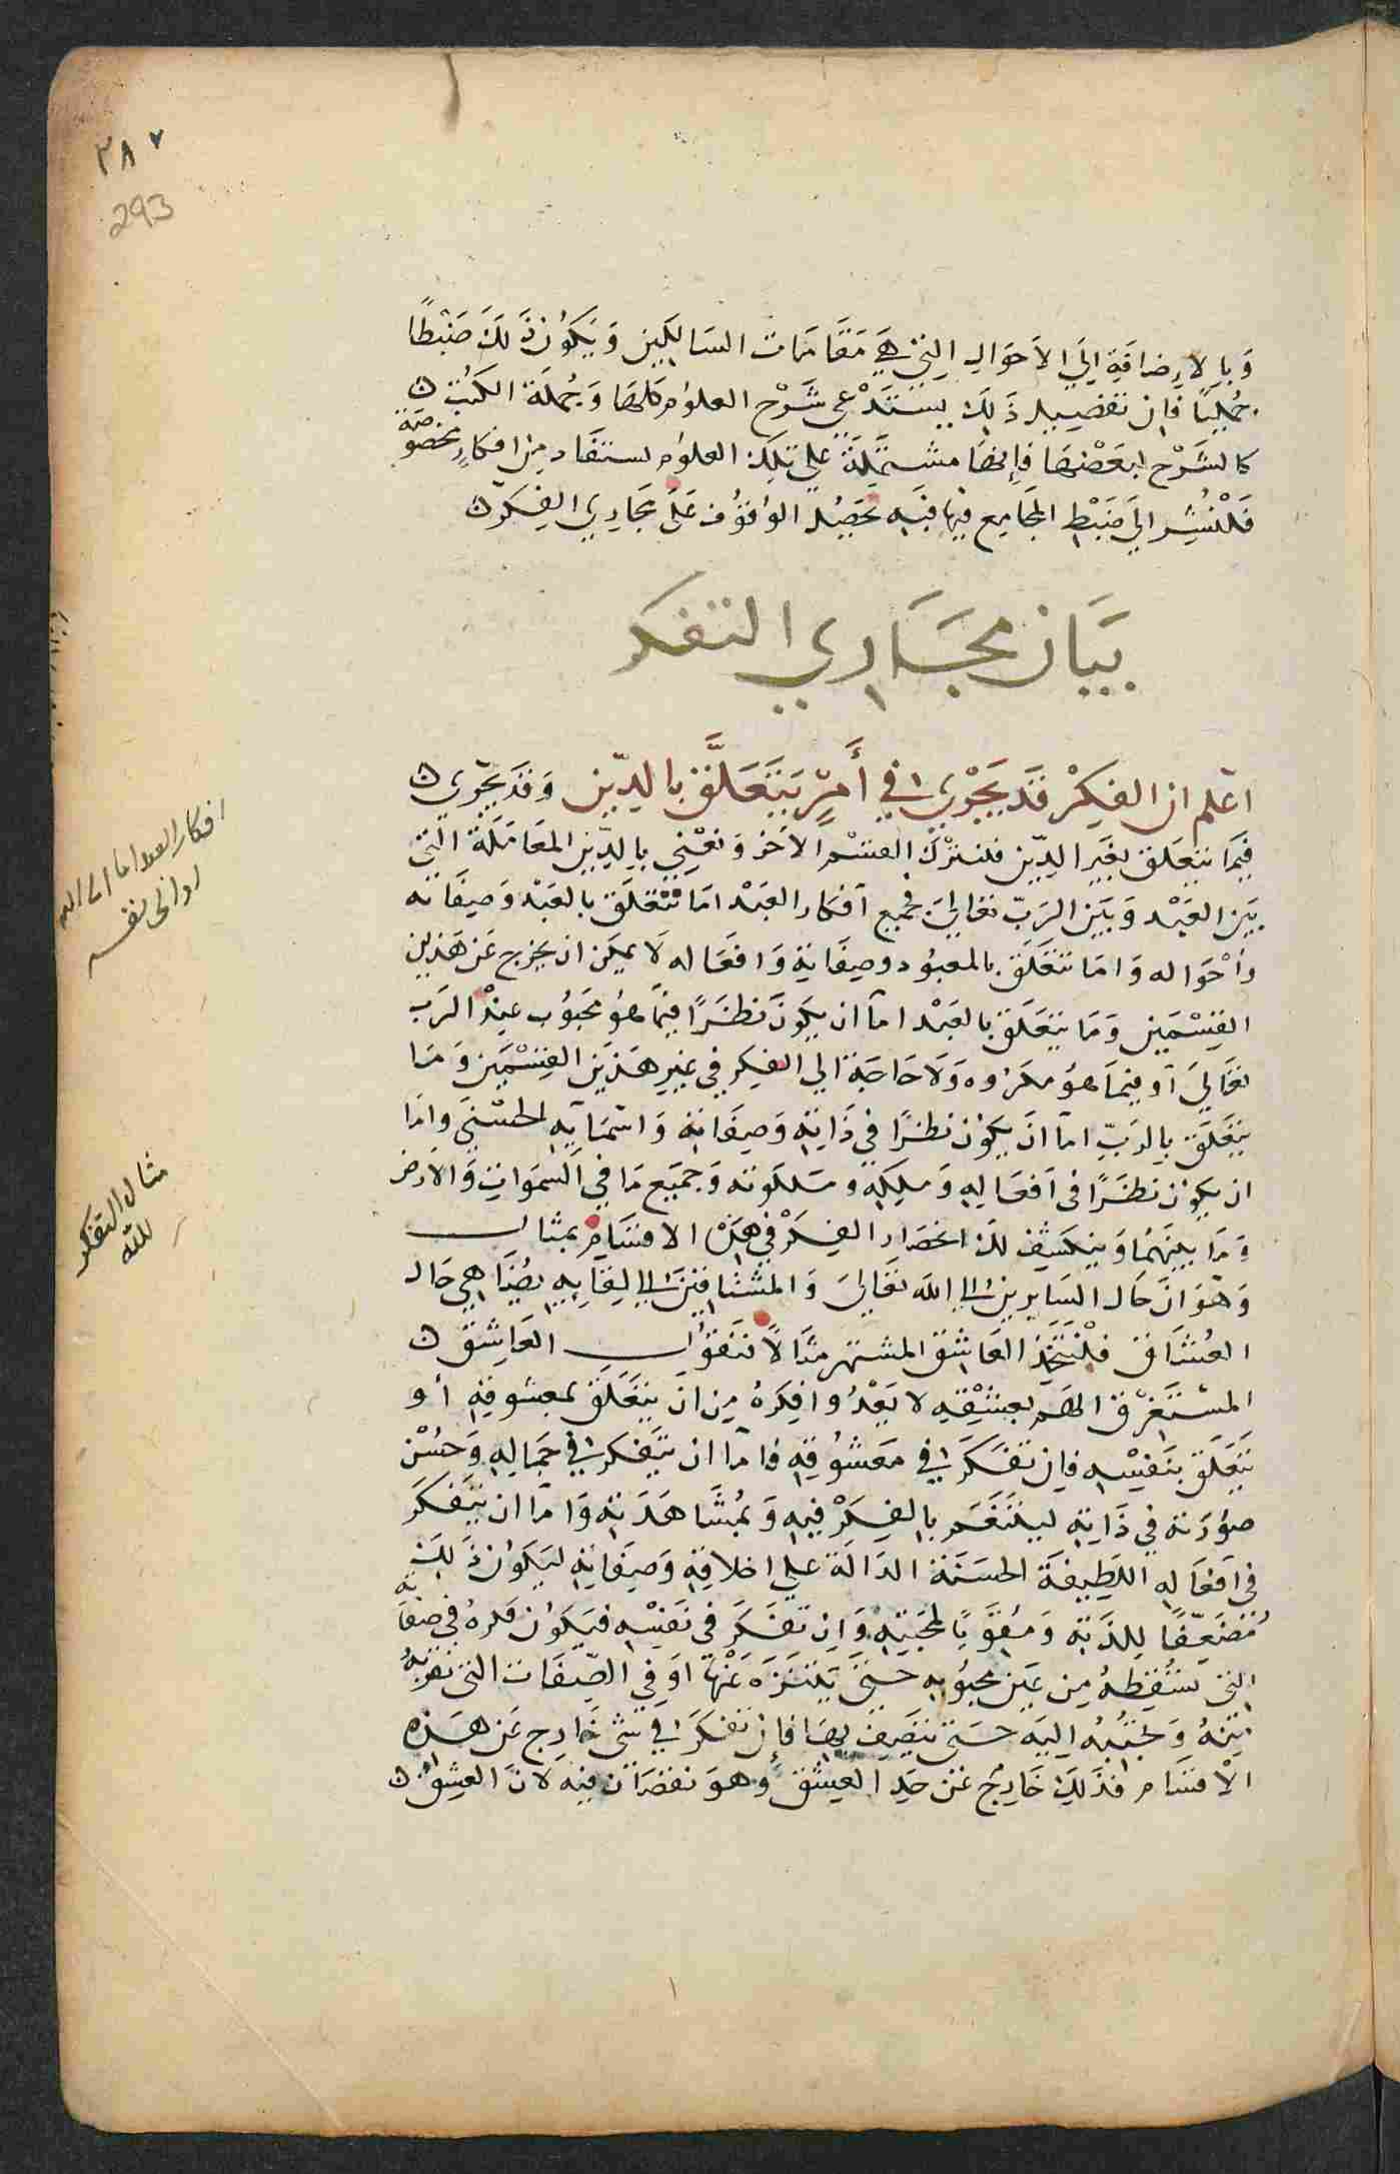 ٣٨٧
293
وَبِالاِضافَةِ اِلَى الاَحوَالِ التِي هِيَ مَقَامَات السَالِكِين وَيَكونُ ذَلِكَ ضَبْطًا
جُمْلِيًا فان تفصيل ذَلِكَ يستَدعى شَرْح العلوم كلهَا وَجُملَة الكتُب
كالشَرْح لبَعْضهَا فانهَا مشتَمِلَة على تلك العلوم تستفاد من افكارٍ مخصوصة
فَلنُشِر الَى ضَبْط المجَامِع فيها فيه تحصيل الوُقوُف عَلَى مجَارِي الفِكر
بَيَان مجَارِي التفكر
اعْلم ان الفِكْر قَد يَجْرِي في أَمْرٍ يَتَعَلَّق بالدّين وَقَد يَجْرِي
فيمَا يتعَلق بغَير الدِّين فلنترُك القسْم الاَخر وَنعْنِي بالدّين المعَامَلة التى
بَين العَبْد وَبَين الرَبّ تعَالى فجميع افكار العَبْد امَا تتعَلق بالعَبْد وَصِفَاته
وَاحْوَاله وَامَا تتعَلَق بالمعبُود وصِفَاتِهِ وَافعَاله لَا يمكن ان يخرج عَن هَذين
القِسْمَين وَمَا يتعَلق بالعَبْد امَا ان يكونَ نظَرًا فيمَا هُو محَبُوب عِنْد الرَب
تعَالى اَو فيمَا هُو مكرُوه وَلَا حَاجَة الى الفِكر في غيرِ هَذَين القِسْمَين وَمَا
يتعَلَق بالرَبّ امَا انَ يكون نظرًا فى ذَاتِه وَصِفَاتِهِ وَاسْمَآئِهِ الحسْنَى وامَا
ان يكون نظَرًا فى اَفعَالِهِ وَملكِهِ وملكوته وَجَميع مَا في السَموَات وَالاَرض
وَمَا بينَهُمَا وَينكشِف لكَ انحصَار الفِكر فى هَذِه الاقسَام بمثَال
وَهوَ انَ حَال السَايرين الى اللَه تعَالى وَالمشتَاقين الى لِقَايِهِ يضَاهِي حَال
العُشَاق فَلنتَخِذ العَاشِق المستهتر مثَالًا فنَقوُل العَاشِق
المستَغرق الهَم بعِشْقِهِ لا يَعْدُوا فِكرهُ مِن ان يتعَلق بمعشوقِهِ اَو
يتعَلق بنَفسِهِ فان تفكَر فى مَعشُوقِهِ فامَا ان يتَفكر فى جَمالِهِ وَحُسْن
صوُرَته في ذَاتِهِ ليتنَعَم بالفِكر فِيهِ وَبمُشَاهَدَتِه وَامَا ان يتَفكَر
فى افعَالِهِ اللطيفَة الحسَنَة الدَالَة عَلى اخلاقِهِ وَصِفَاتِهِ ليَكون ذَلك
مُضعِّفًا للذَتِهِ وَمُقوّيًا لمحَبَتِهِ وَان تفَكَر فى نَفسِهِ فيَكوُن فكرهُ فى صفَاته
التى تسْقِطهُ مِن عَين محبُوبِهِ حتى يتنَزه عَنهَا اَو فى الصّفَات التى تقربهُ
مِنهُ وَتحَببُهُ اليَهِ حتى يتصِف بهَا فان تفكَر فى شَئ خَارِج عَن هَذه
الاقسَام فذَلك خَارِج عَن حَد العِشق وَهو نقصَان فيه لانَ العِشق
افكار العبد اما الى الله
او الى نفسه
مثال التفكر
لله